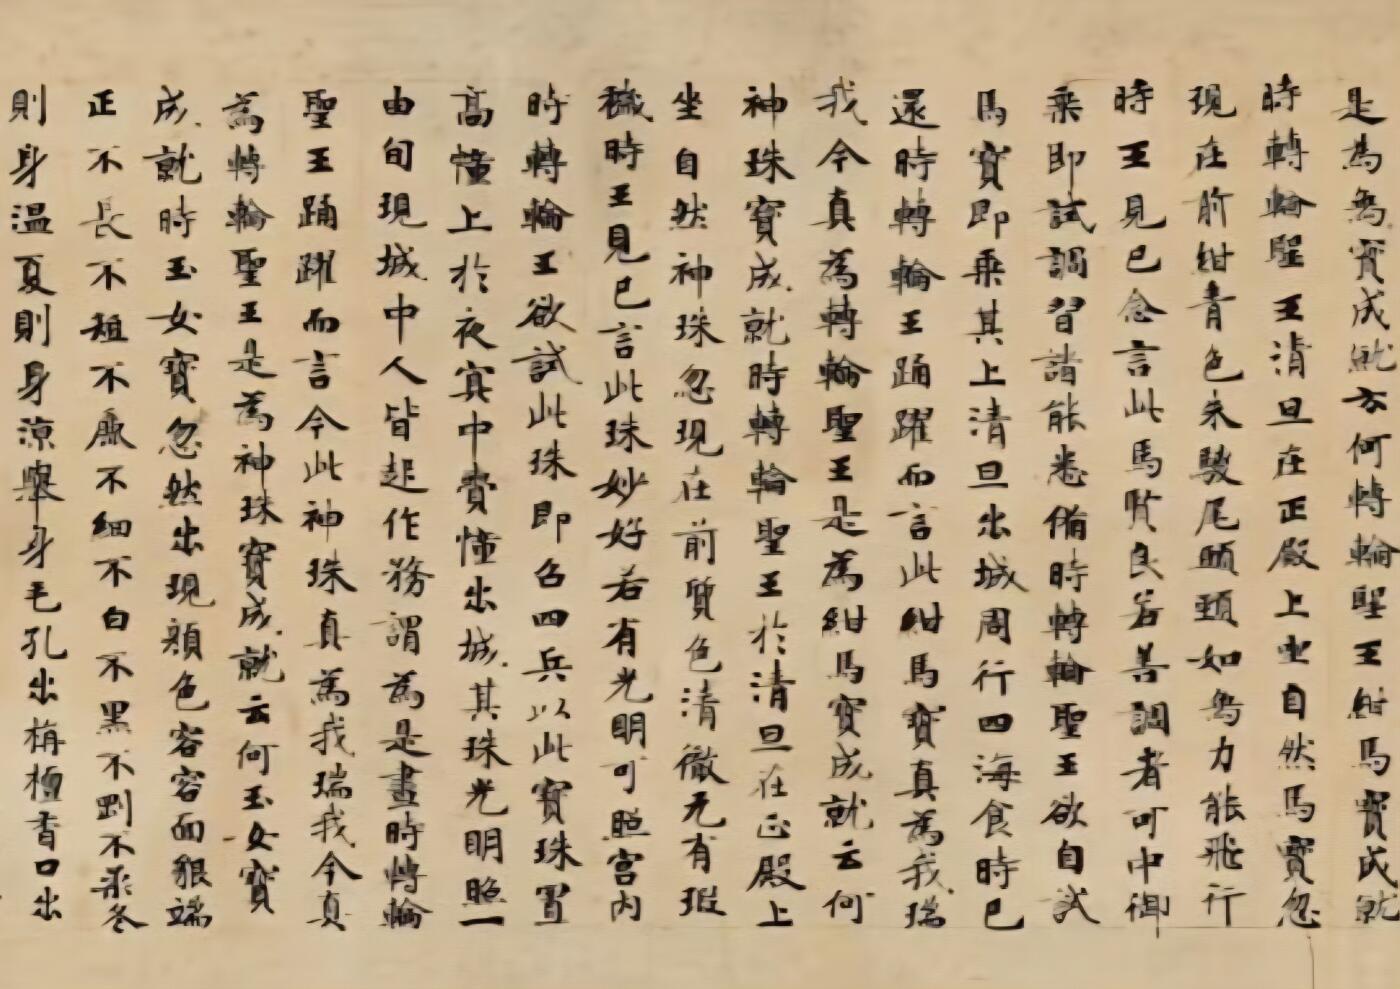 是為烏寶成就方何轉輪聖王紺馬寶成就
時轉輪聖王清旦在正殿上坐自然馬寶忽
現在前紺青色朱駿尾頭頸如烏力能飛行
時王見已念言此馬賢良若善調者可中御
乘即試調習諸能悉備時轉輪聖王欲自試
馬寶即乘其上清旦出城周行四海食時已
還時轉輪王踊躍而言此紺馬寶真為我瑞
我今真為轉輪聖王是為紺馬寶成就云何
神珠寶成就時轉輪聖王於清旦在正殿上
坐自然神珠忽現在前質色清徹无有瑕
穢時王見已言此珠妙好若有光明可照宮內
時轉輪王欲試此珠即召四兵以此寶珠置
高幢上於夜冥中賷幢出城其珠光明照一
由旬現城中人皆起作務謂為是晝時轉輪
聖王踊躍而言今此神珠真為我瑞我今真
為轉輪聖王是為神珠寶成就云何玉女寶
成就時玉女寶忽然出現顏色容容面貌端
正不長不短不麁不細不白不黑不剛不柔冬
則身溫夏則身涼舉身毛孔出栴檀香口出